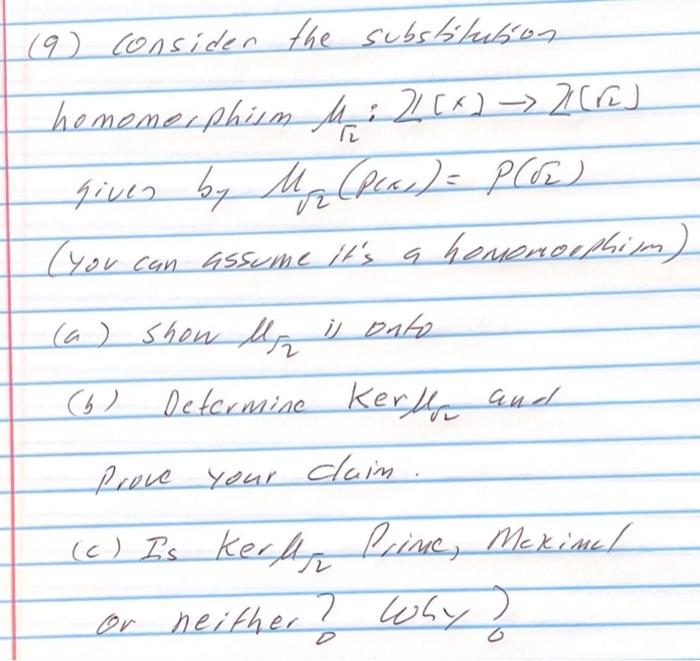 (9) Consider the substitution
homomorphism μ_√2 : ℤ[x] → ℤ[√2]
given by μ_√2 (p(x)) = p(√2)
(you can assume it's a homomorphism)
(a) Show μ_√2 is onto
(b) Determine Ker μ_√2 and
Prove your claim.
(c) Is Ker μ_√2 Prime, Maximal
or neither? Why?